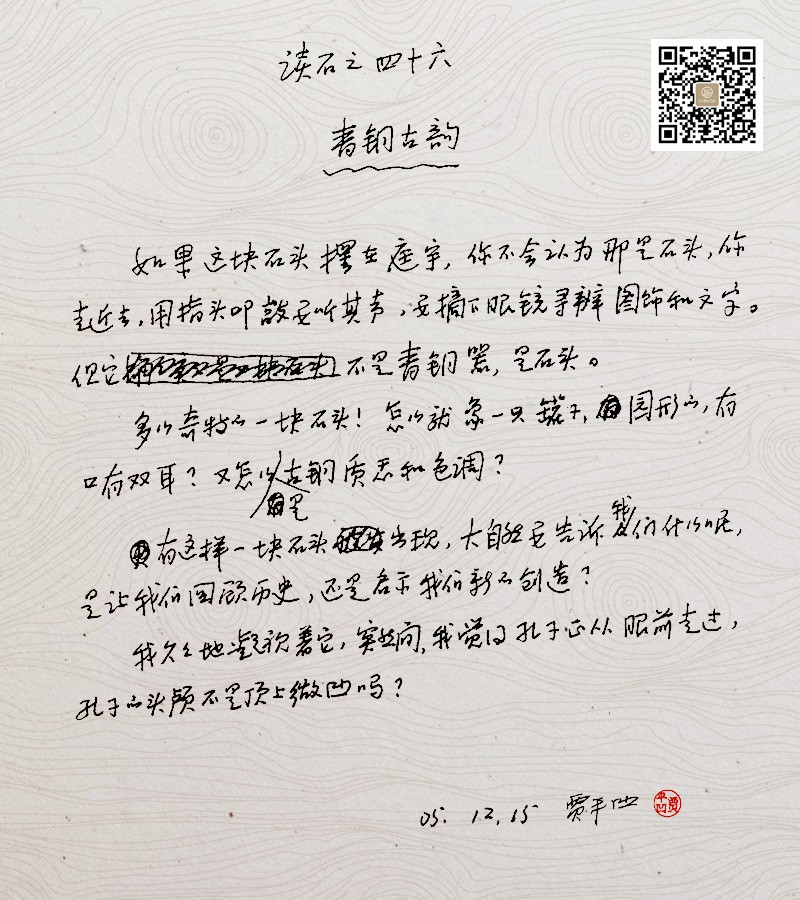 读石之四十六
青铜古韵
如果这块石头摆在庭宇，你不会认为那是石头，你
走近去，用指头叩敲要听其声，要摘下眼镜寻辨图饰和文字。
但它不是青铜器，是石头。
多么奇特的一块石头！怎么就象一只罐子，圆形的，有
口有双耳？又怎么是古铜质态和色调？
有这样一块石头出现，大自然要告诉我们什么呢，
是让我们回顾历史，还是启示我们新的创造？
我久久地凝视着它，突然间，我觉得孔子正从眼前走过，
孔子的头颅不是顶上微凹吗？
05.12.15 贾平凹
贾平凹